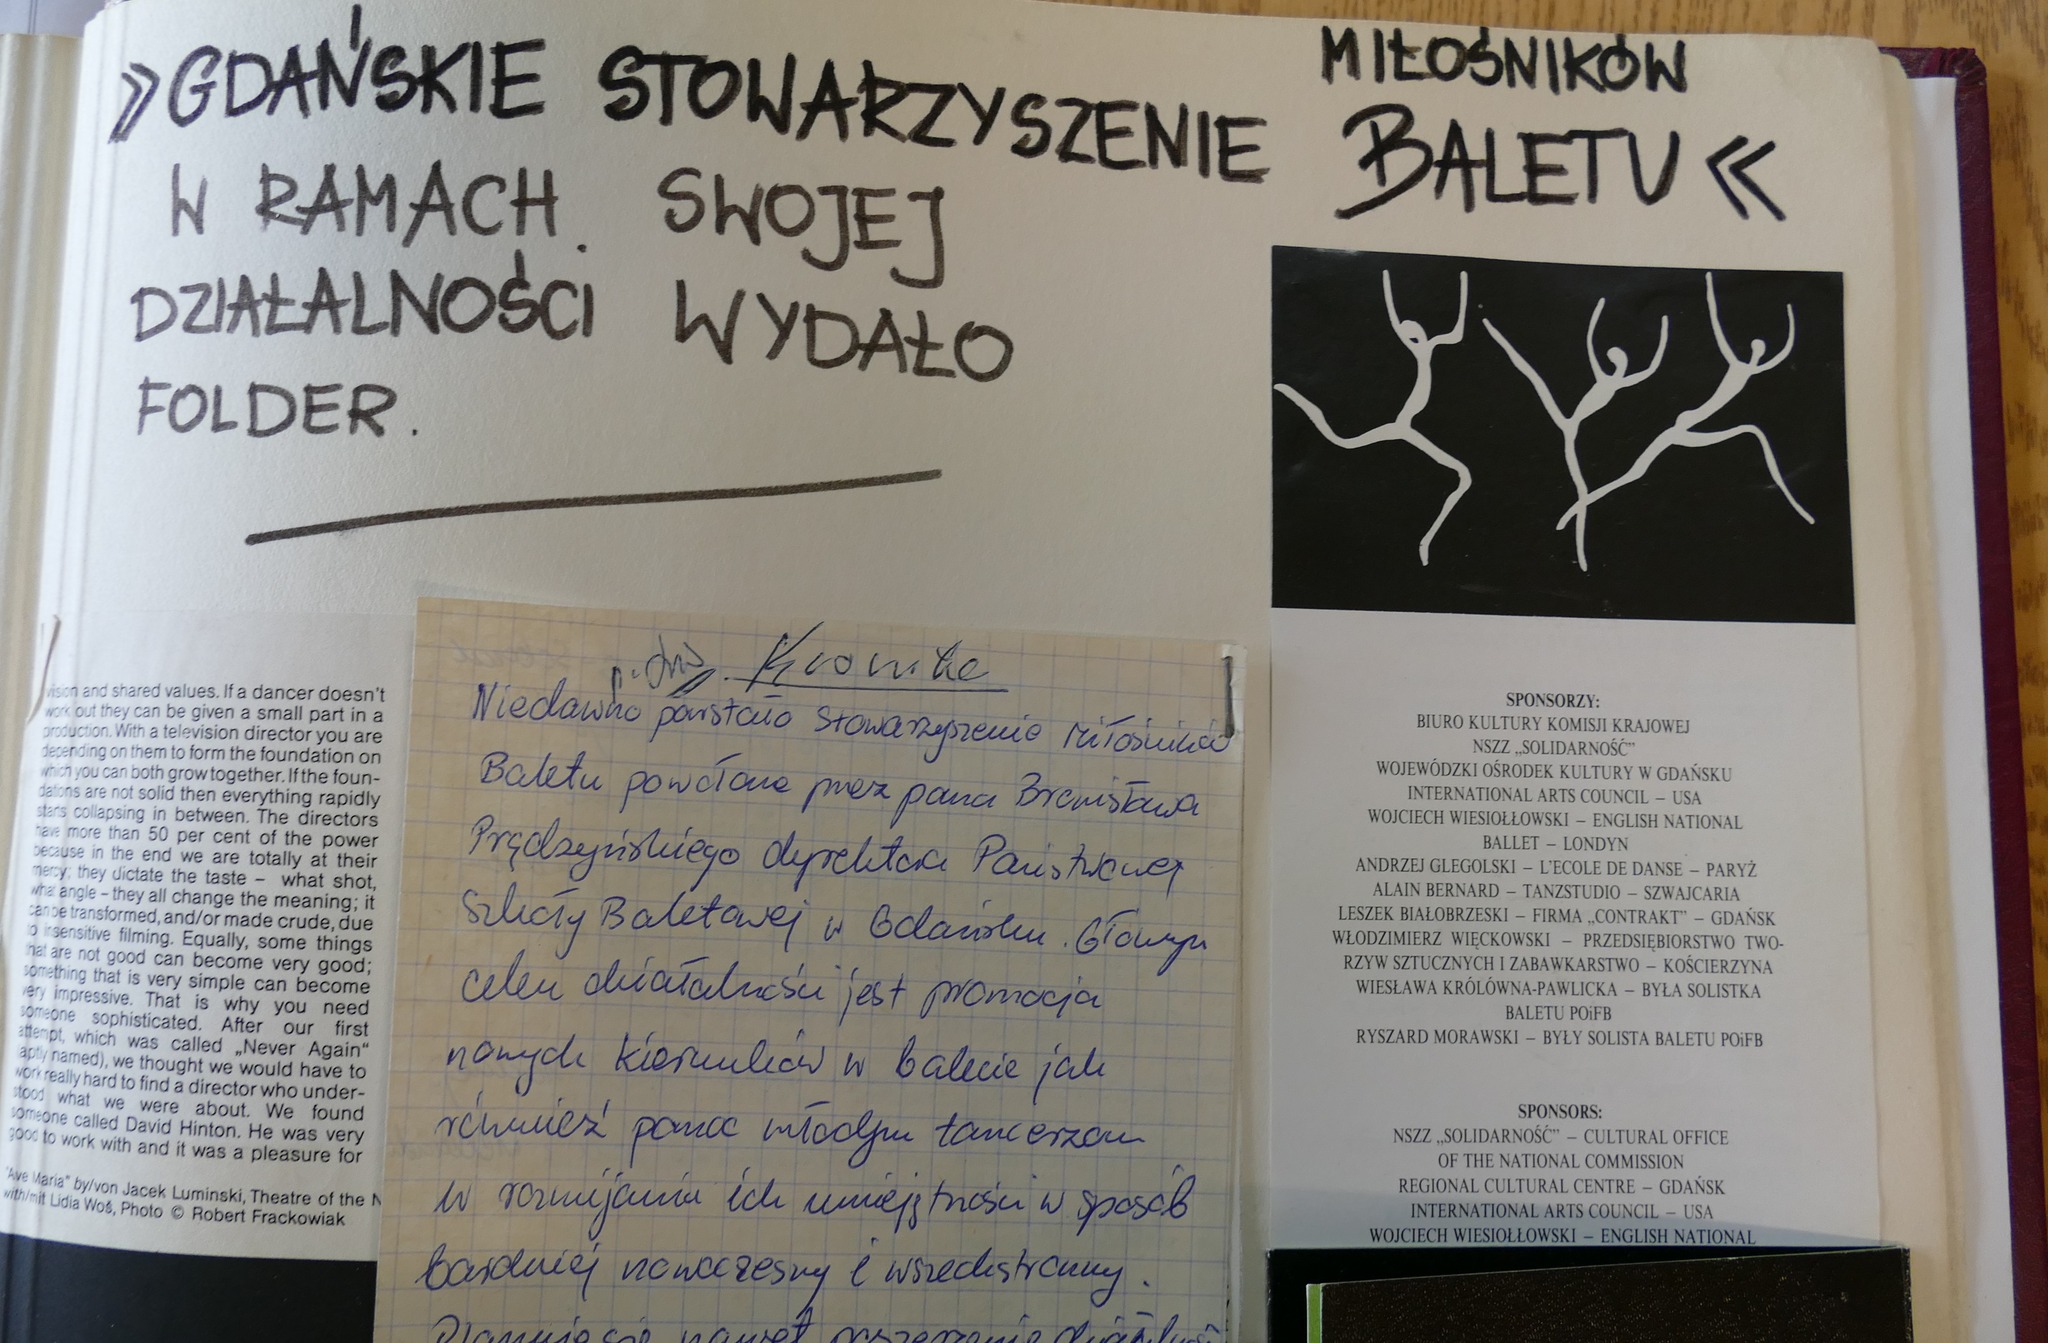 »GDAŃSKIE STOWARZYSZENIE MIŁOŚNIKÓW
BALETU«
W RAMACH SWOJEJ
DZIAŁALNOŚCI WYDAŁO
FOLDER.
vision and shared values. If a dancer doesn't
work out they can be given a small part in a
production. With a television director you are
depending on them to form the foundation on
which you can both grow together. If the foun-
dations are not solid then everything rapidly
starts collapsing in between. The directors
have more than 50 per cent of the power
because in the end we are totally at their
mercy; they dictate the taste – what shot,
what angle – they all change the meaning; it
can be transformed, and/or made crude, due
to insensitive filming. Equally, some things
that are not good can become very good;
something that is very simple can become
very impressive. That is why you need
someone sophisticated. After our first
attempt, which was called „Never Again"
aptly named), we thought we would have to
work really hard to find a director who under-
stood what we were about. We found
someone called David Hinton. He was very
good to work with and it was a pleasure for
"Ave Maria" by/von Jacek Luminski, Theatre of the
with/mit Lidia Woś, Photo © Robert Frackowiak
Kronika
Niedawno powstało Stowarzyszenie Miłośników
Baletu powołane przez pana Bronisława
Prądzyńskiego dyrektora Państwowej
Szkoły Baletowej w Gdańsku. Głównym
celem działalności jest promocja
nowych kierunków w balecie jak
również pomoc młodym tancerzom
w rozwijaniu ich umiejętności w sposób
bardziej nowoczesny i wszechstronny.
Planuje się nawet
SPONSORZY:
BIURO KULTURY KOMISJI KRAJOWEJ
NSZZ „SOLIDARNOŚĆ"
WOJEWÓDZKI OŚRODEK KULTURY W GDAŃSKU
INTERNATIONAL ARTS COUNCIL – USA
WOJCIECH WIESIOŁŁOWSKI – ENGLISH NATIONAL
BALLET – LONDYN
ANDRZEJ GLEGOLSKI – L'ECOLE DE DANSE – PARYŻ
ALAIN BERNARD – TANZSTUDIO – SZWAJCARIA
LESZEK BIAŁOBRZESKI – FIRMA „CONTRAKT" – GDAŃSK
WŁODZIMIERZ WIĘCKOWSKI – PRZEDSIĘBIORSTWO TWO-
RZYW SZTUCZNYCH I ZABAWKARSTWO – KOŚCIERZYNA
WIESŁAWA KRÓLÓWNA-PAWLICKA – BYŁA SOLISTKA
BALETU POiFB
RYSZARD MORAWSKI – BYŁY SOLISTA BALETU POiFB
SPONSORS:
NSZZ „SOLIDARNOŚĆ" – CULTURAL OFFICE
OF THE NATIONAL COMMISSION
REGIONAL CULTURAL CENTRE – GDAŃSK
INTERNATIONAL ARTS COUNCIL – USA
WOJCIECH WIESIOŁŁOWSKI – ENGLISH NATIONAL